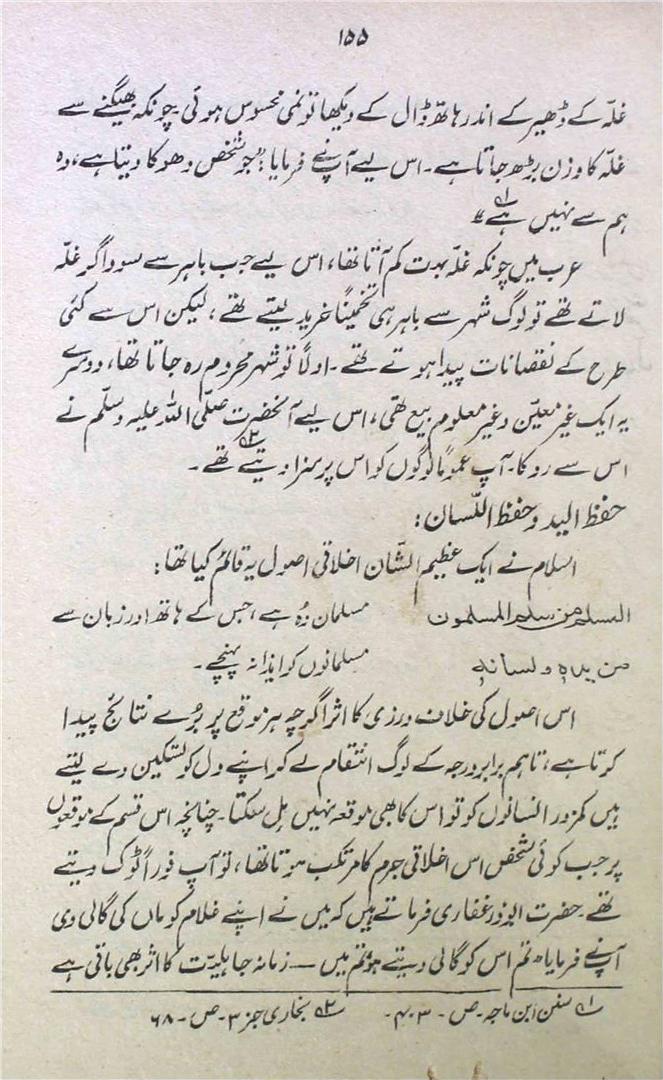 ۱۵۵
غلّہ کے ڈھیر کے اندر ہاتھ ڈال کے دیکھا تو نمی محسوس ہوئی۔ چونکہ بھیگنے سے
غلّہ کا وزن بڑھ جاتا ہے۔ اس لیے آپؐ نے فرمایا: "جو شخص دھوکا دیتا ہے، وہ
ہم سے نہیں ہے۔"؂۱
عرب میں چونکہ غلّہ بہت کم آتا تھا، اس لیے جب باہر سے سوداگر غلّہ
لاتے تھے تو لوگ شہر سے باہر ہی تخمیناً خرید لیتے تھے؛ لیکن اس سے کئی
طرح کے نقصانات پیدا ہوتے تھے۔ اولاً تو شہر محروم رہ جاتا تھا، دوسرے
یہ ایک غیر معیّن و غیر معلوم بیع تھی، اس لیے آنحضرت صلّی اللہ علیہ وسلّم نے
اس سے روکا۔ آپ عموماً لوگوں کو اس پر سزا دیتے تھے۔؂۲
حفظ الید و حفظ اللّسان:
اسلام نے ایک عظیم الشّان اخلاقی اصول یہ قائم کیا تھا:
المسلم من سلم المسلمون مسلمان وُہ ہے، جس کے ہاتھ اور زبان سے
من یدہٖ و لسانہٖ مسلمانوں کو ایذا نہ پہنچے۔
اس اصول کی خلاف ورزی کا اثر اگرچہ ہر موقع پر بُرے نتائج پیدا
کرتا ہے، تاہم برابر درجہ کے لوگ انتقام لے کر اپنے دل کو تسکین دے لیتے
ہیں کمزور انسانوں کو تو اس کا بھی موقعہ نہیں مل سکتا۔ چنانچہ اس قسم کے موقعوں
پر جب کوئی شخص اس اخلاقی جرم کا مرتکب ہوتا تھا، تو آپ فوراً ٹوک دیتے
تھے۔ حضرت ابوذر غفاری فرماتے ہیں کہ میں نے اپنے غلام کو ماں کی گالی دی
آپؐ نے فرمایا "تم اس کو گالی دیتے ہو تم میں — زمانہ جاہلیّت کا اثر بھی باقی ہے
؂۱ سنن ابن ماجہ۔ ص۔ ۴۰۳۔ ؂۲ بخاری جز ۳۔ ص۔ ۶۸